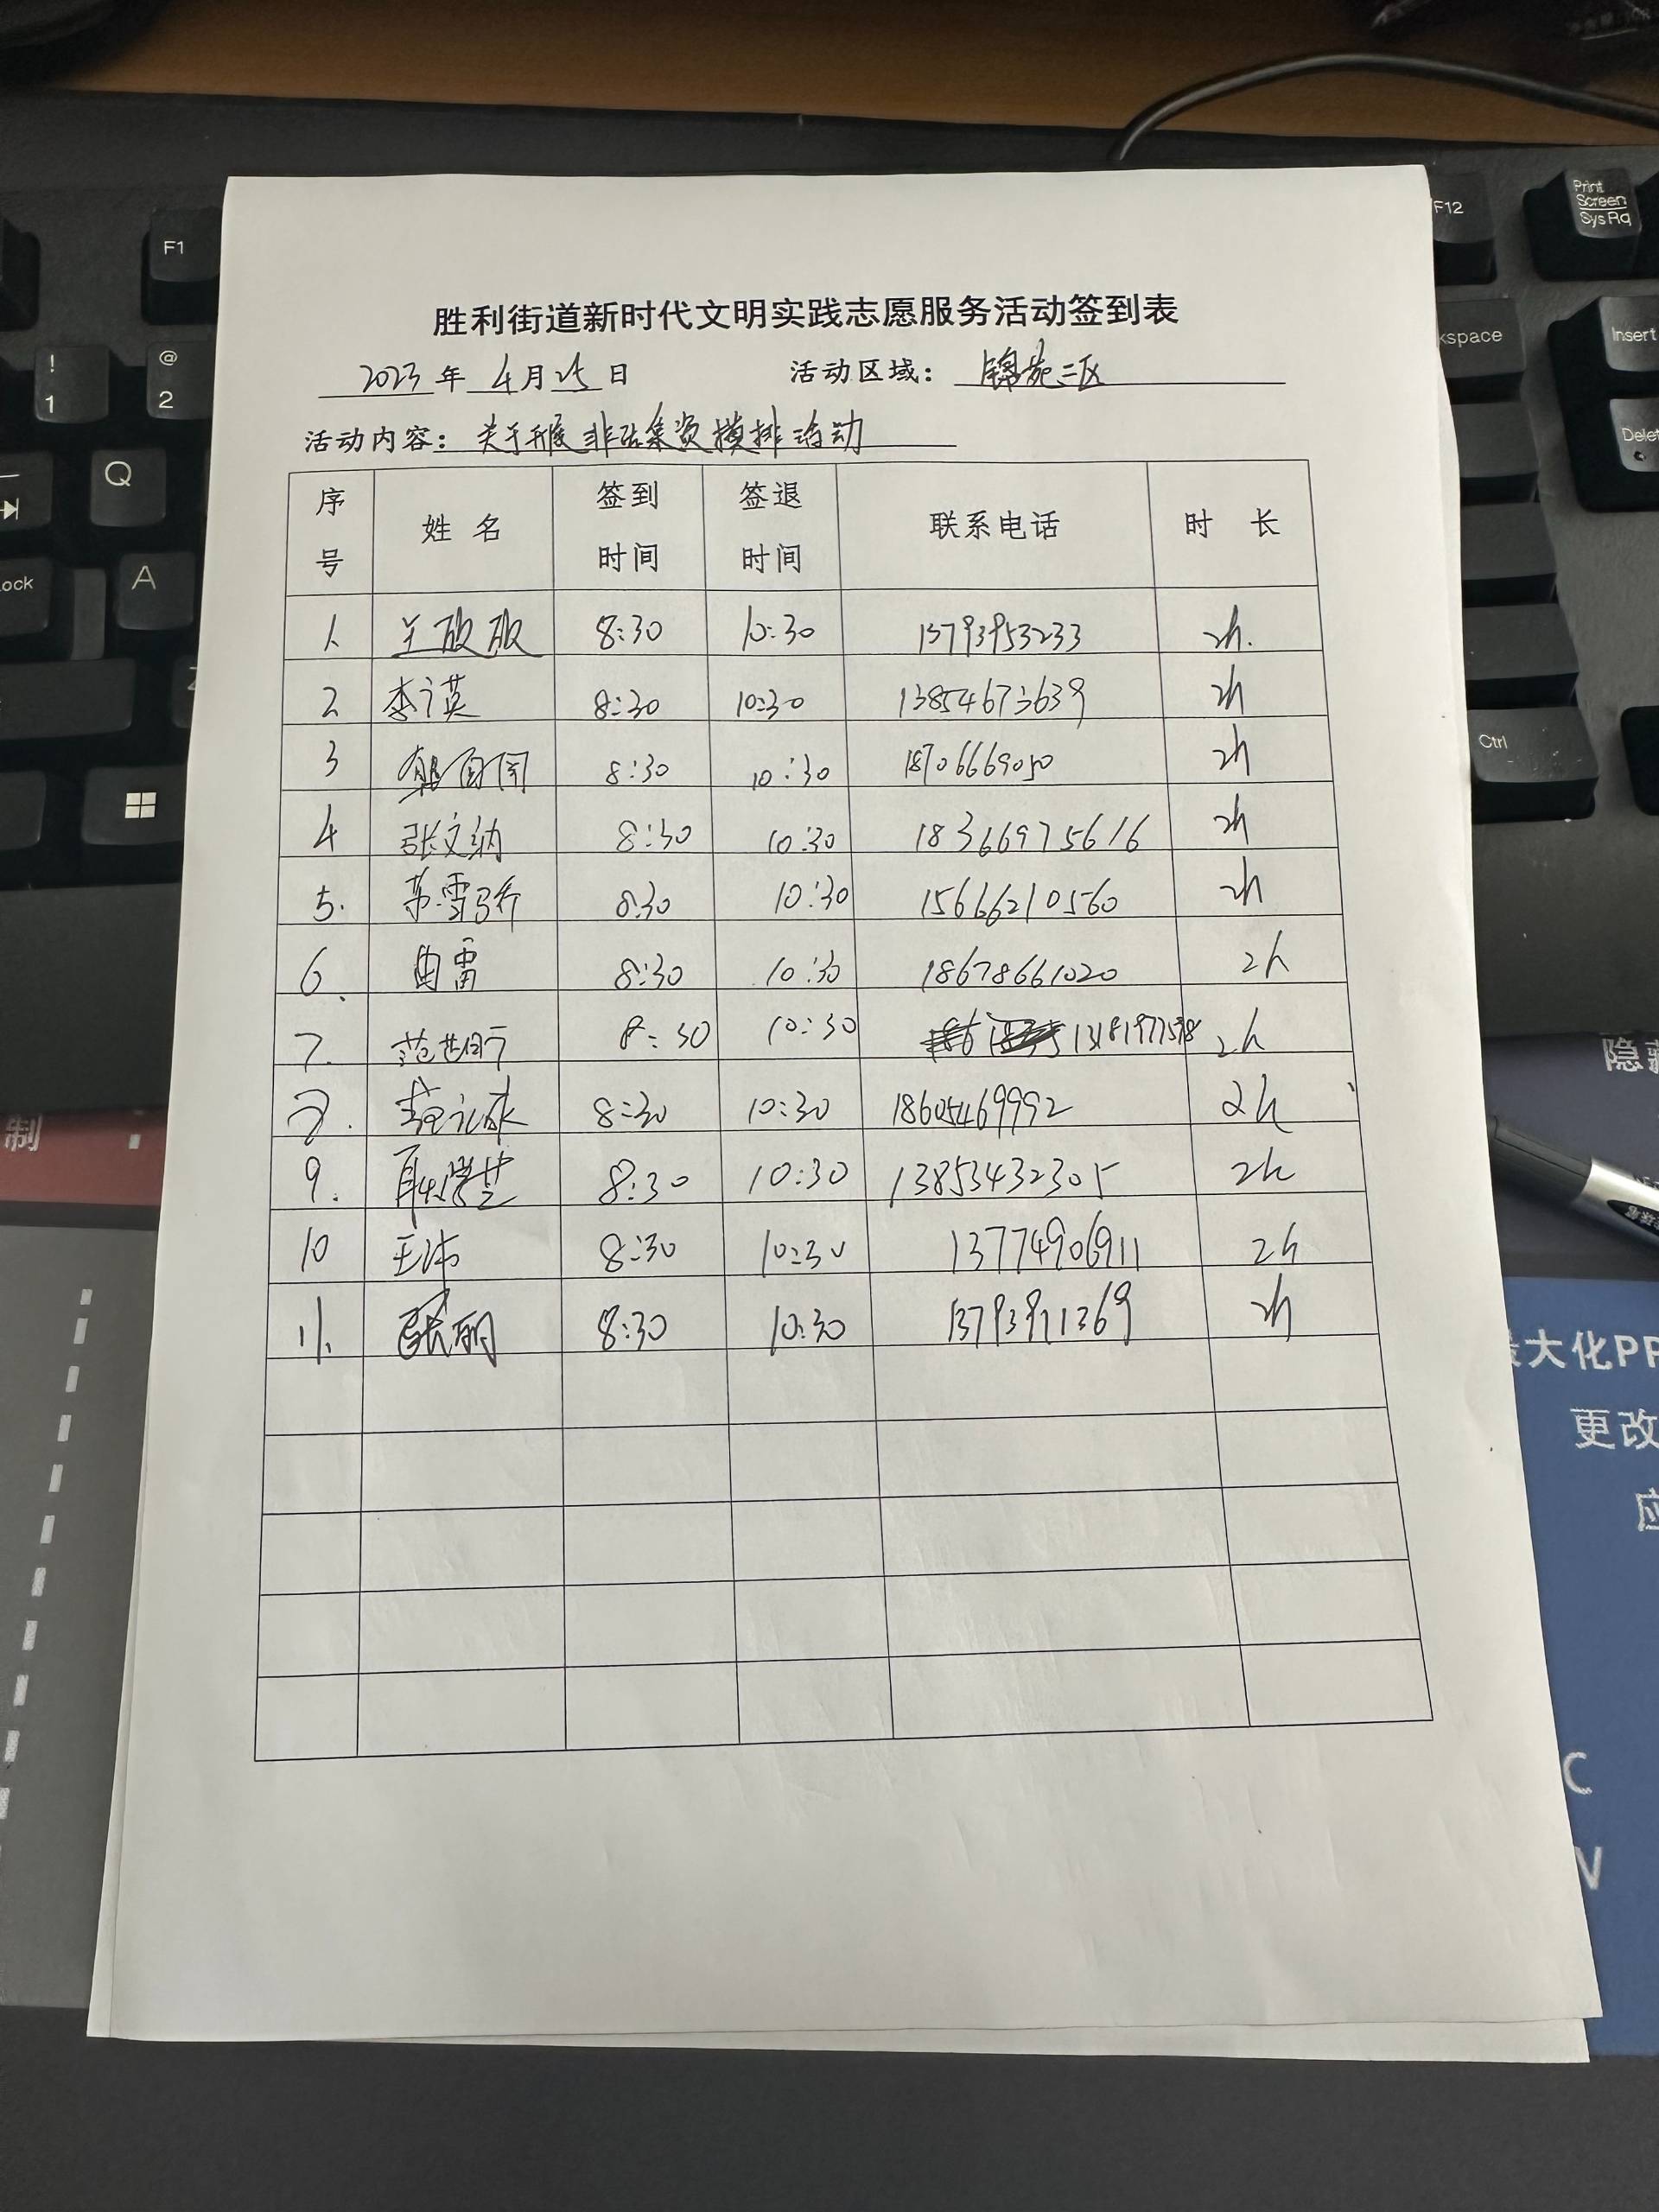 F1
F12
Print Screen SysRq
胜利街道新时代文明实践志愿服务活动签到表
2023 年 4月 25 日 活动区域: 锦苑三区
活动内容: 关于开展非法集资摸排活动
序号 姓名 签到时间 签退时间 联系电话 时长
1. 8:30 10:30 13793953233 2h.
2 李广英 8:30 10:30 13854673639 2h
3 8:30 10:30 18706669050 2h
4 张文纳 8:30 10:30 18366975616 2h
5. 苏雪娇 8:30 10:30 15666210560 2h
6. 曲雷 8:30 10:30 18678661020 2h
7. 8:30 10:30 2h
8. 8:30 10:30 18605469992 2h
9. 8:30 10:30 13853432305 2h
10 王沛 8:30 10:30 13774906911 2h
11. 张丽 8:30 10:30 13793911369 2h
!
1
@
2
Q
A
ock
kspace
Insert
Delet
Ctrl
隐藏
制
最大化PP
更改
应
C
V